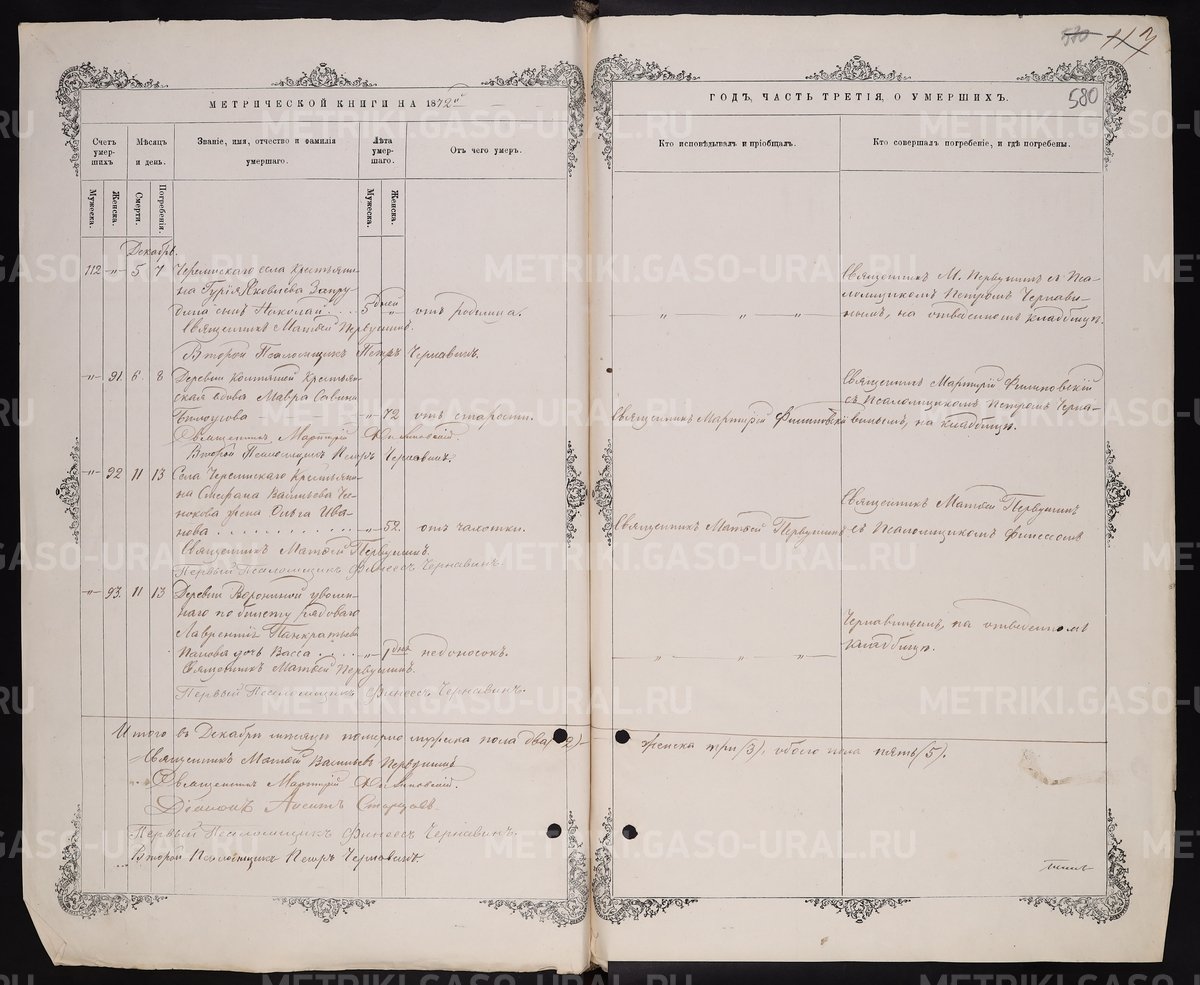 580 117
МЕТРИЧЕСКОЙ КНИГИ НА 1872й
ГОДЪ, ЧАСТЬ ТРЕТІЯ, О УМЕРШИХЪ.
580
Счетъ умер-шихъ
Мѣсяцъ и день.
Званіе, имя, отчество и фамилія умершаго.
Лѣта умер-шаго.
Отъ чего умеръ.
Кто исповѣдывалъ и пріобщалъ.
Кто совершалъ погребеніе, и гдѣ погребены.
Мужеска.
Женска.
Смерти.
Погребенія.
Мужеска.
Женска.
Декабрь.
112 -"- 5 7 села Крестьяни-
на Гурія Яковлева Запру-
дина сынъ Николай . . . 5 дней " отъ родимца.
Священникъ Матѳей Первушинъ.
Второй Псаломщикъ Петръ Чернавинъ.
Священникъ М. Первушинъ съ Пса-
ломщикомъ Петромъ Чернави-
нымъ, на отведенномъ кладбищѣ.
-"- 91. 6. 8 Деревни Крестьян-
ская вдова Мавра Савина
-"- 72 отъ старости.
Священникъ Мартирій Филиповскій.
Второй Псаломщикъ Петръ Чернавинъ.
Священникъ Мартирій Филиповскій
Священникъ Мартирій Филиповскій
съ Псаломщикомъ Петромъ Черна-
винымъ, на кладбищѣ.
-"- 92 11 13 Села Крестьяни-
на Стефана Васильева Че-
нокова жена Ольга Ива-
нова . . . . . . . . -"- 52. отъ чахотки.
Священникъ Матѳей Первушинъ.
Первый Псаломщикъ Финеесъ Чернавинъ.
Священникъ Матѳей Первушинъ
Священникъ Матѳей Первушинъ
съ Псаломщикомъ Финеесомъ
-"- 93. 11 13 Деревни Ворониной уволен-
наго по билету рядоваго
Лаврентія Панкратьева
Панова дочь Васса . . . -"- 1 дня недоносокъ.
Священникъ Матѳей Первушинъ.
Первый Псаломщикъ Финеесъ Чернавинъ.
Чернавинымъ, на отведенномъ
кладбищѣ.
Итого въ Декабрѣ мѣсяцѣ померло мужеска пола два (2)
женска три (3), обоего пола пять (5).
Священникъ Матѳей Васильевъ Первушинъ
Священникъ Мартирій Филиповскій.
Діаконъ Старцевъ.
Первый Псаломщикъ Финеесъ Чернавинъ.
Второй Псаломщикъ Петръ Чернавинъ
METRIKI.GASO-URAL.RU